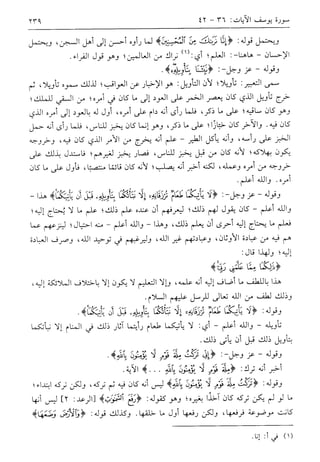 سورة يوسف الآيات: ٣٦ - ٤٢ ٢٣٩
ويحتمل قوله: ﴿إِنَّا نَرَىٰكَ مِنَ ٱلْمُحْسِنِينَ﴾ لما رأوه أحسن إلى أهل السجن، ويحتمل
الإحسان - هاهنا -: العلم؛ أي:(١) نراك من العالمين؛ وهو قول الفراء.
وقوله - عز وجل -: ﴿نَبِّئْنَا بِتَأْوِيلِهِ﴾.
سمى التعبير: تأويلا؛ لأن التأويل: هو الإخبار عن العواقب؛ لذلك سموه تأويلا، ثم
خرج تأويل الذي كان يعصر الخمر على العود إلى ما كان في أمره؛ من السقي للملك؛
وهو كان ساقيه؛ على ما ذكر، فلما رأى أنه دام على أمره، أول له بالعود إلى أمره الذي
كان فيه. والآخر كان خبازًا؛ على ما ذكر، وهو إنما كان يخبز للناس، فلما رأى أنه حمل
الخبز على رأسه، وأنه يأكل الطير - علم أنه يخرج من الأمر الذي كان فيه، وخروجه
يكون بهلاكه؛ لأنه كان من قبل يخبز للناس، فصار يخبز لغيرهم؛ فاستدل بذلك على
خروجه من أمره وعمله، لكنه أخبر أنه يصلب؛ لأنه كان قائمًا منتصبًا، فأول على ما كان
أمره. والله أعلم.
وقوله - عز وجل -: ﴿لَا يَأْتِيكُمَا طَعَامٌ تُرْزَقَانِهِۦٓ إِلَّا نَبَّأْتُكُمَا بِتَأْوِيلِهِۦ قَبْلَ أَن يَأْتِيَكُمَا﴾ هذا -
والله أعلم - كان يقول لهم ذلك؛ ليعرفهم أن عنده علم ذلك؛ علم ما لا يُحتاج إليه؛
فعلم ما يحتاج إليه أحرى أن يعلم ذلك، وهذا - والله أعلم - منه احتيال؛ لينزعهم عما
هم فيه من عبادة الأوثان، وعبادتهم غير الله، وليرغبهم في توحيد الله، وصرف العبادة
إليه؛ ولهذا قال:
﴿ذَٰلِكُمَا مِمَّا عَلَّمَنِى رَبِّىٓ﴾
هذا باللطف ما أضاف إليه أنه علمه، وإلا التعليم لا يكون إلا باختلاف الملائكة إليه،
وذلك لطف من الله تعالى للرسل عليهم السلام.
وقوله: ﴿لَا يَأْتِيكُمَا طَعَامٌ تُرْزَقَانِهِۦٓ إِلَّا نَبَّأْتُكُمَا بِتَأْوِيلِهِۦ قَبْلَ أَن يَأْتِيَكُمَا﴾.
تأويله - والله أعلم - أي: لا يأتيكما طعام رأيتما آثار ذلك في المنام إلا نبأتكما
بتأويل ذلك قبل أن يأتي ذلك.
وقوله - عز وجل -: ﴿إِنِّى تَرَكْتُ مِلَّةَ قَوْمٍ لَّا يُؤْمِنُونَ بِٱللَّهِ﴾.
أخبر أنه ترك: ﴿مِلَّةَ قَوْمٍ لَّا يُؤْمِنُونَ بِٱللَّهِ . . .﴾ الآية.
وقوله: ﴿تَرَكْتُ مِلَّةَ قَوْمٍ لَّا يُؤْمِنُونَ بِٱللَّهِ﴾ ليس أنه كان فيه ثم تركه، ولكن تركه ابتداء؛
ما لو لم يكن تركه كان آخذًا بغيره؛ وهو كقوله: ﴿رَفَعَ ٱلسَّمَٰوَٰتِ﴾ [الرعد: ٢] ليس أنها
كانت موضوعة فرفعها، ولكن رفعها أول ما خلقها. وكذلك قوله: ﴿وَٱلْأَرْضَ وَضَعَهَا﴾
(١) في أ: إنا.